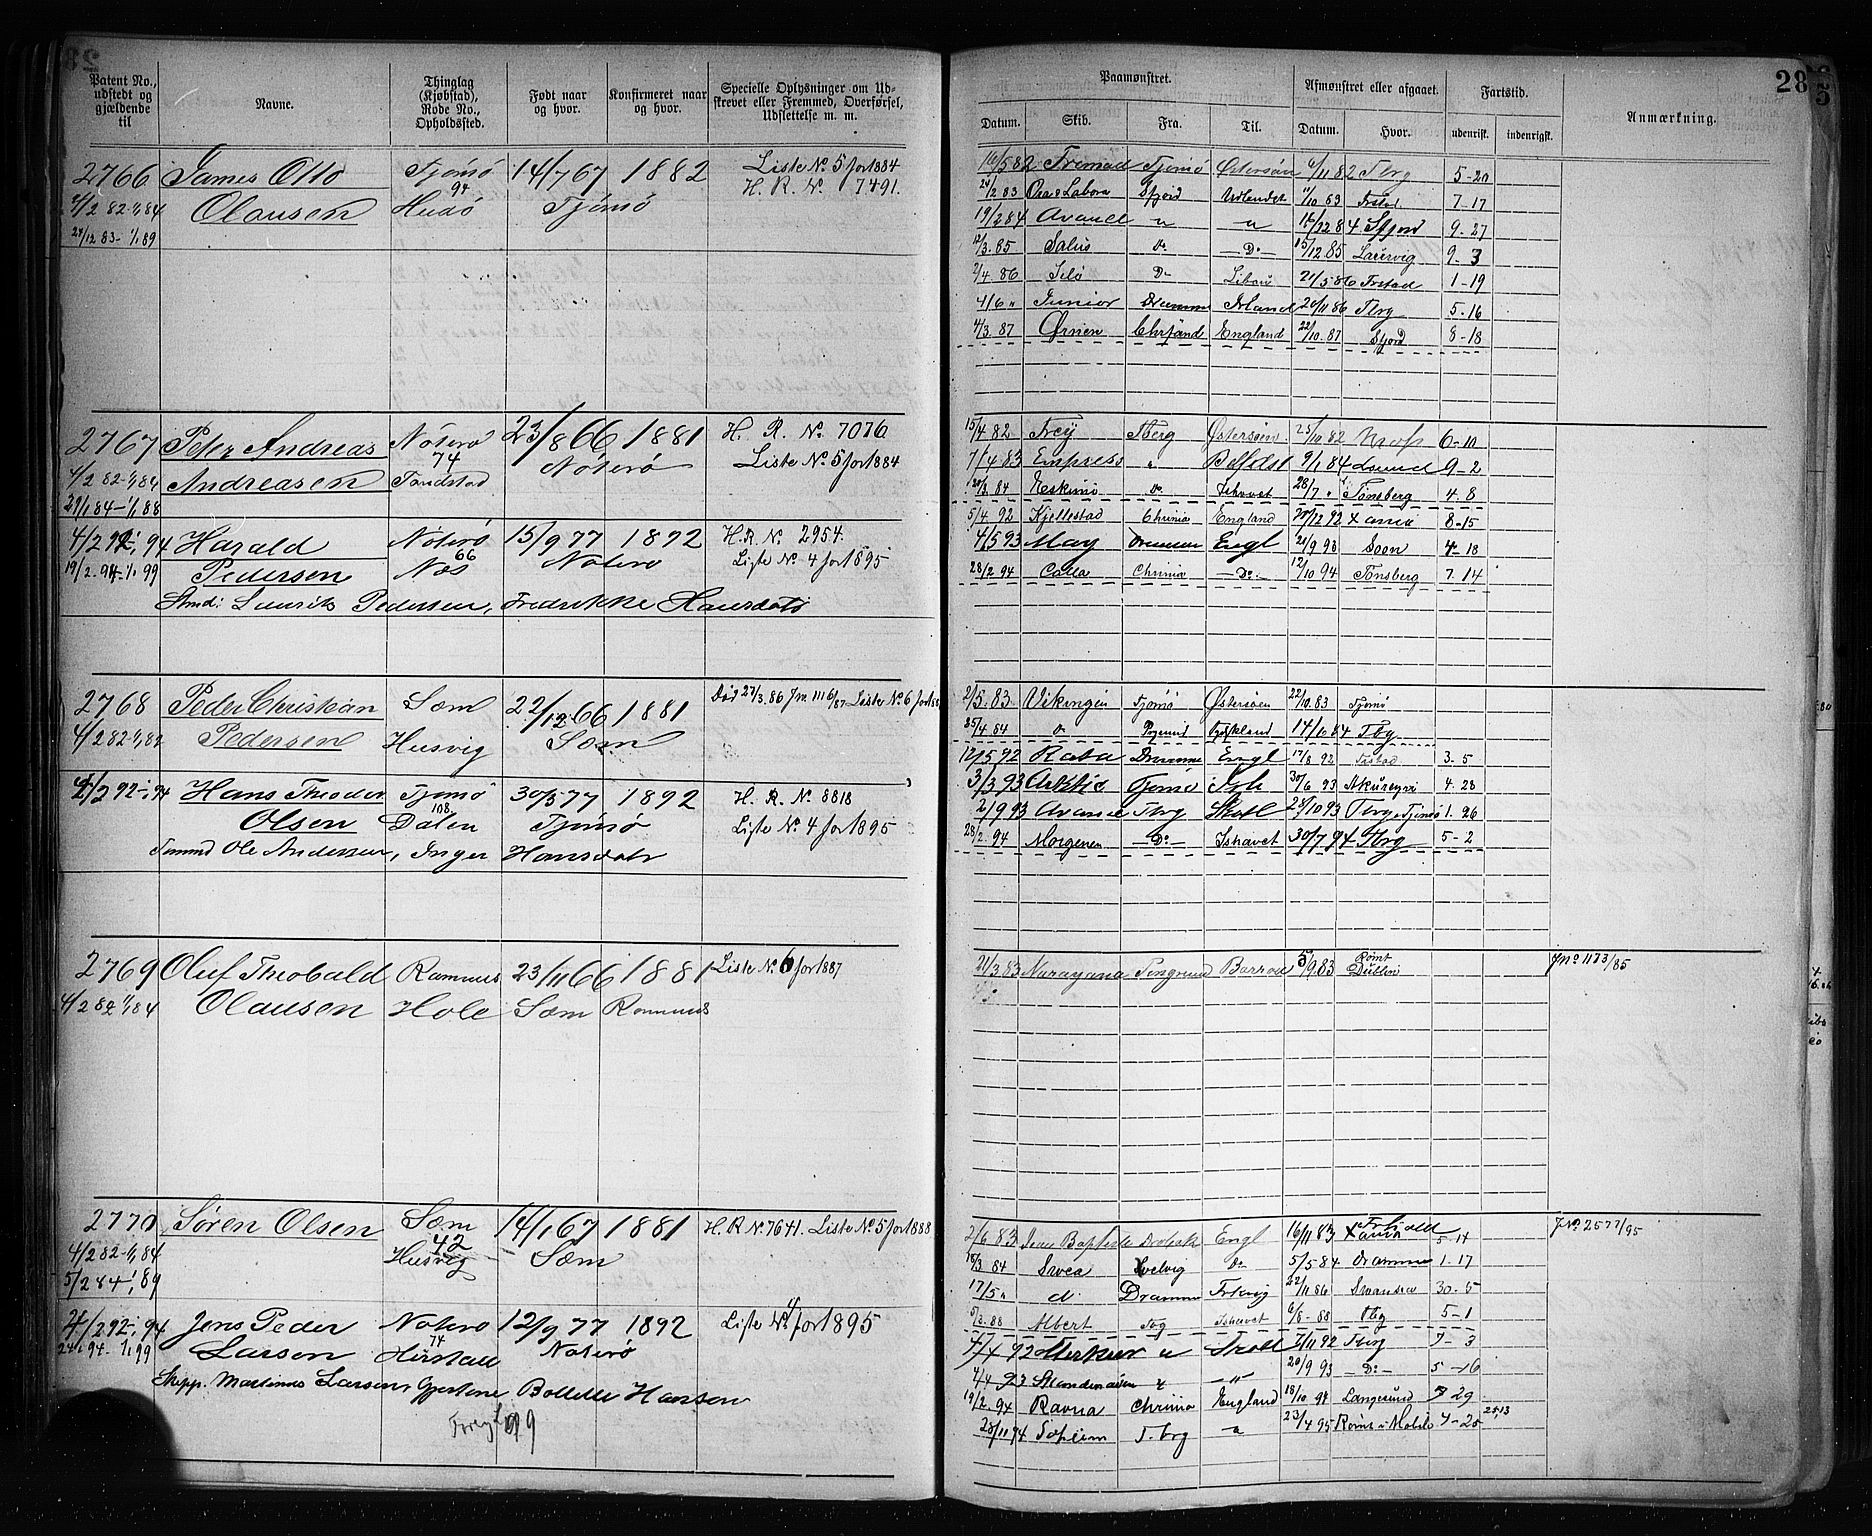 28
Patent No., udstedt og gjældende til
Navne.
Thinglag (Kjøbstad), Rode No., Opholdssted.
Født naar og hvor.
Konfirmeret naar og hvor.
Specielle Oplysninger om Udskrevet eller Fremmed, Overførsel, Udslettelse m. m.
Paamønstret.
Afmønstret eller afgaaet.
Fartstid.
Anmærkning.
Datum. Skib. Fra. Til. Datum. Hvor. udenrigsk. indenrigsk.
2766 James Otto Tjømø 14/7 67 1882 Liste No. 5 for 1884
4/2 82-1/1 84 Olausen 94 Hudø Tjømø H. R. No. 7491.
24/12 83-1/1 89
16/5 82 Fremad Tjømø Østersøn 6/11 82 Tbrg 5-20
24/2 83 Ora & Labora Sfjord Udlandet 11/10 83 Frstad 7-17
19/2 84 Avance " " 16/12 84 Sfjord 9-27
12/3 85 Salus Do -Do- 15/12 85 Laurvig 9-3
2/4 86 Do Libau 21/5 86 Frstad 1-19
4/6 " Junior Dramme Irland 20/11 86 Tbrg 5-16
4/3 87 Ørnen Chrsand England 22/10 87 Sfjord 8-18
2767 Peter Andreas Nøterø 23/8 66 1881 H. R. No. 7076
4/2 82-1/1 84 Andreasen 74 Nøterø Liste No. 5 for 1884
29/1 84-1/1 88
15/4 82 Frey Tberg Østersøen 25/10 82 6-10
7/4 83 Empress " Belfast 9/1 84 9-2
20/3 84 Eskimo Do Ishavet 28/7 " Tønsberg 4.8
4/2 92-1/1 94 Harald Nøterø 15/9 77 1892 H. R. No. 2954.
19/2 94-1/1 99 Pedersen 66 Næs Nøterø Liste No. 4 for 1895
Pedersen, Fredrikke Hansdatr
5/4 92 Kjellestad Chrinia England 20/12 92 Xania 8-15
4/5 93 May Drammen Engl 21/9 93 Soon 4-18
28/2 94 Catla Chrinia -Do.- 12/10 94 Tønsberg 7.14
2768 Peder Christian Sæm 22/12 66 1881 Død 27/3 86 Jn 1116/87 Liste No. 6 for 88
4/2 82-1/1 84 Pedersen Husvig Sæm
2/5 83 Vikingen Tjømø Østersøen 22/10 83 Tjømø
25/4 84 Do Tydskland 14/10 84 Tbg
4/2 92-1/1 94 Hans Theodor Tjømø 30/3 77 1892 H. R. No. 8818
Olsen 108 Dalen Tjømø Liste No. 4 for 1895
Tømmd Ole Andersen, Inger Hansdatr
12/5 92 Rota Dramme Engl 17/8 92 Frstad 3-5
3/3 93 Arktic Tjømø Ish 30/6 93 Akureyri 4.28
2/9 93 Avance Tbrg Skotl 28/10 93 Tbrg & Tjømø 1.26
28/2 94 Morgenen -Do- Ishavet 30/7 94 Tbrg 5-2
2769 Oluf Theobald Ramnæs 23/11 66 1881 Liste No. 6 for 1887
4/2 82 1/1 84 Olausen Hole Sæm Ramnæs
21/3 83 Narayana Barrow 5/9 83 Rømt Dublin Jno 1173/85
2770 Søren Olsen Sæm 14/1 67 1881 H. R. No. 7641. Liste No. 5 for 1888
4/2 82-1/1 84 42 Husvig Sæm
5/2 84 1/1 89
2/6 83 Jean Baptiste Drøbak Engl 16/11 83 Xania 5-14 J No. 2577/95
16/3 84 Svea Svelvig Do 5/5 84 Dramme 1-17
17/5 " Do Dramme 22/11 86 Swansea 30-5
5/3 88 Albert Tbg Ishavet 6/8 88 Tbg 5-1
4/2 92-1/1 94 Jens Peder Nøterø 12/9 77 1892 Liste No. 4 for 1895
24/1 94-1/1 99 Larsen 74 Nøterø
Skipp. Martinus Larsen, Gjertine Bollette Hansen
99
4/4 92 Merkur " 7/11 92 Tbrg 7-3
4/4 93 " -"- 20/9 93 -Do- 5-16
19/2 94 Ravna Chrinia England 18/10 94 Langesund 7 29
28/11 94 T. brg " 23/4 95 Rømt i Mobile 4-25 25,13